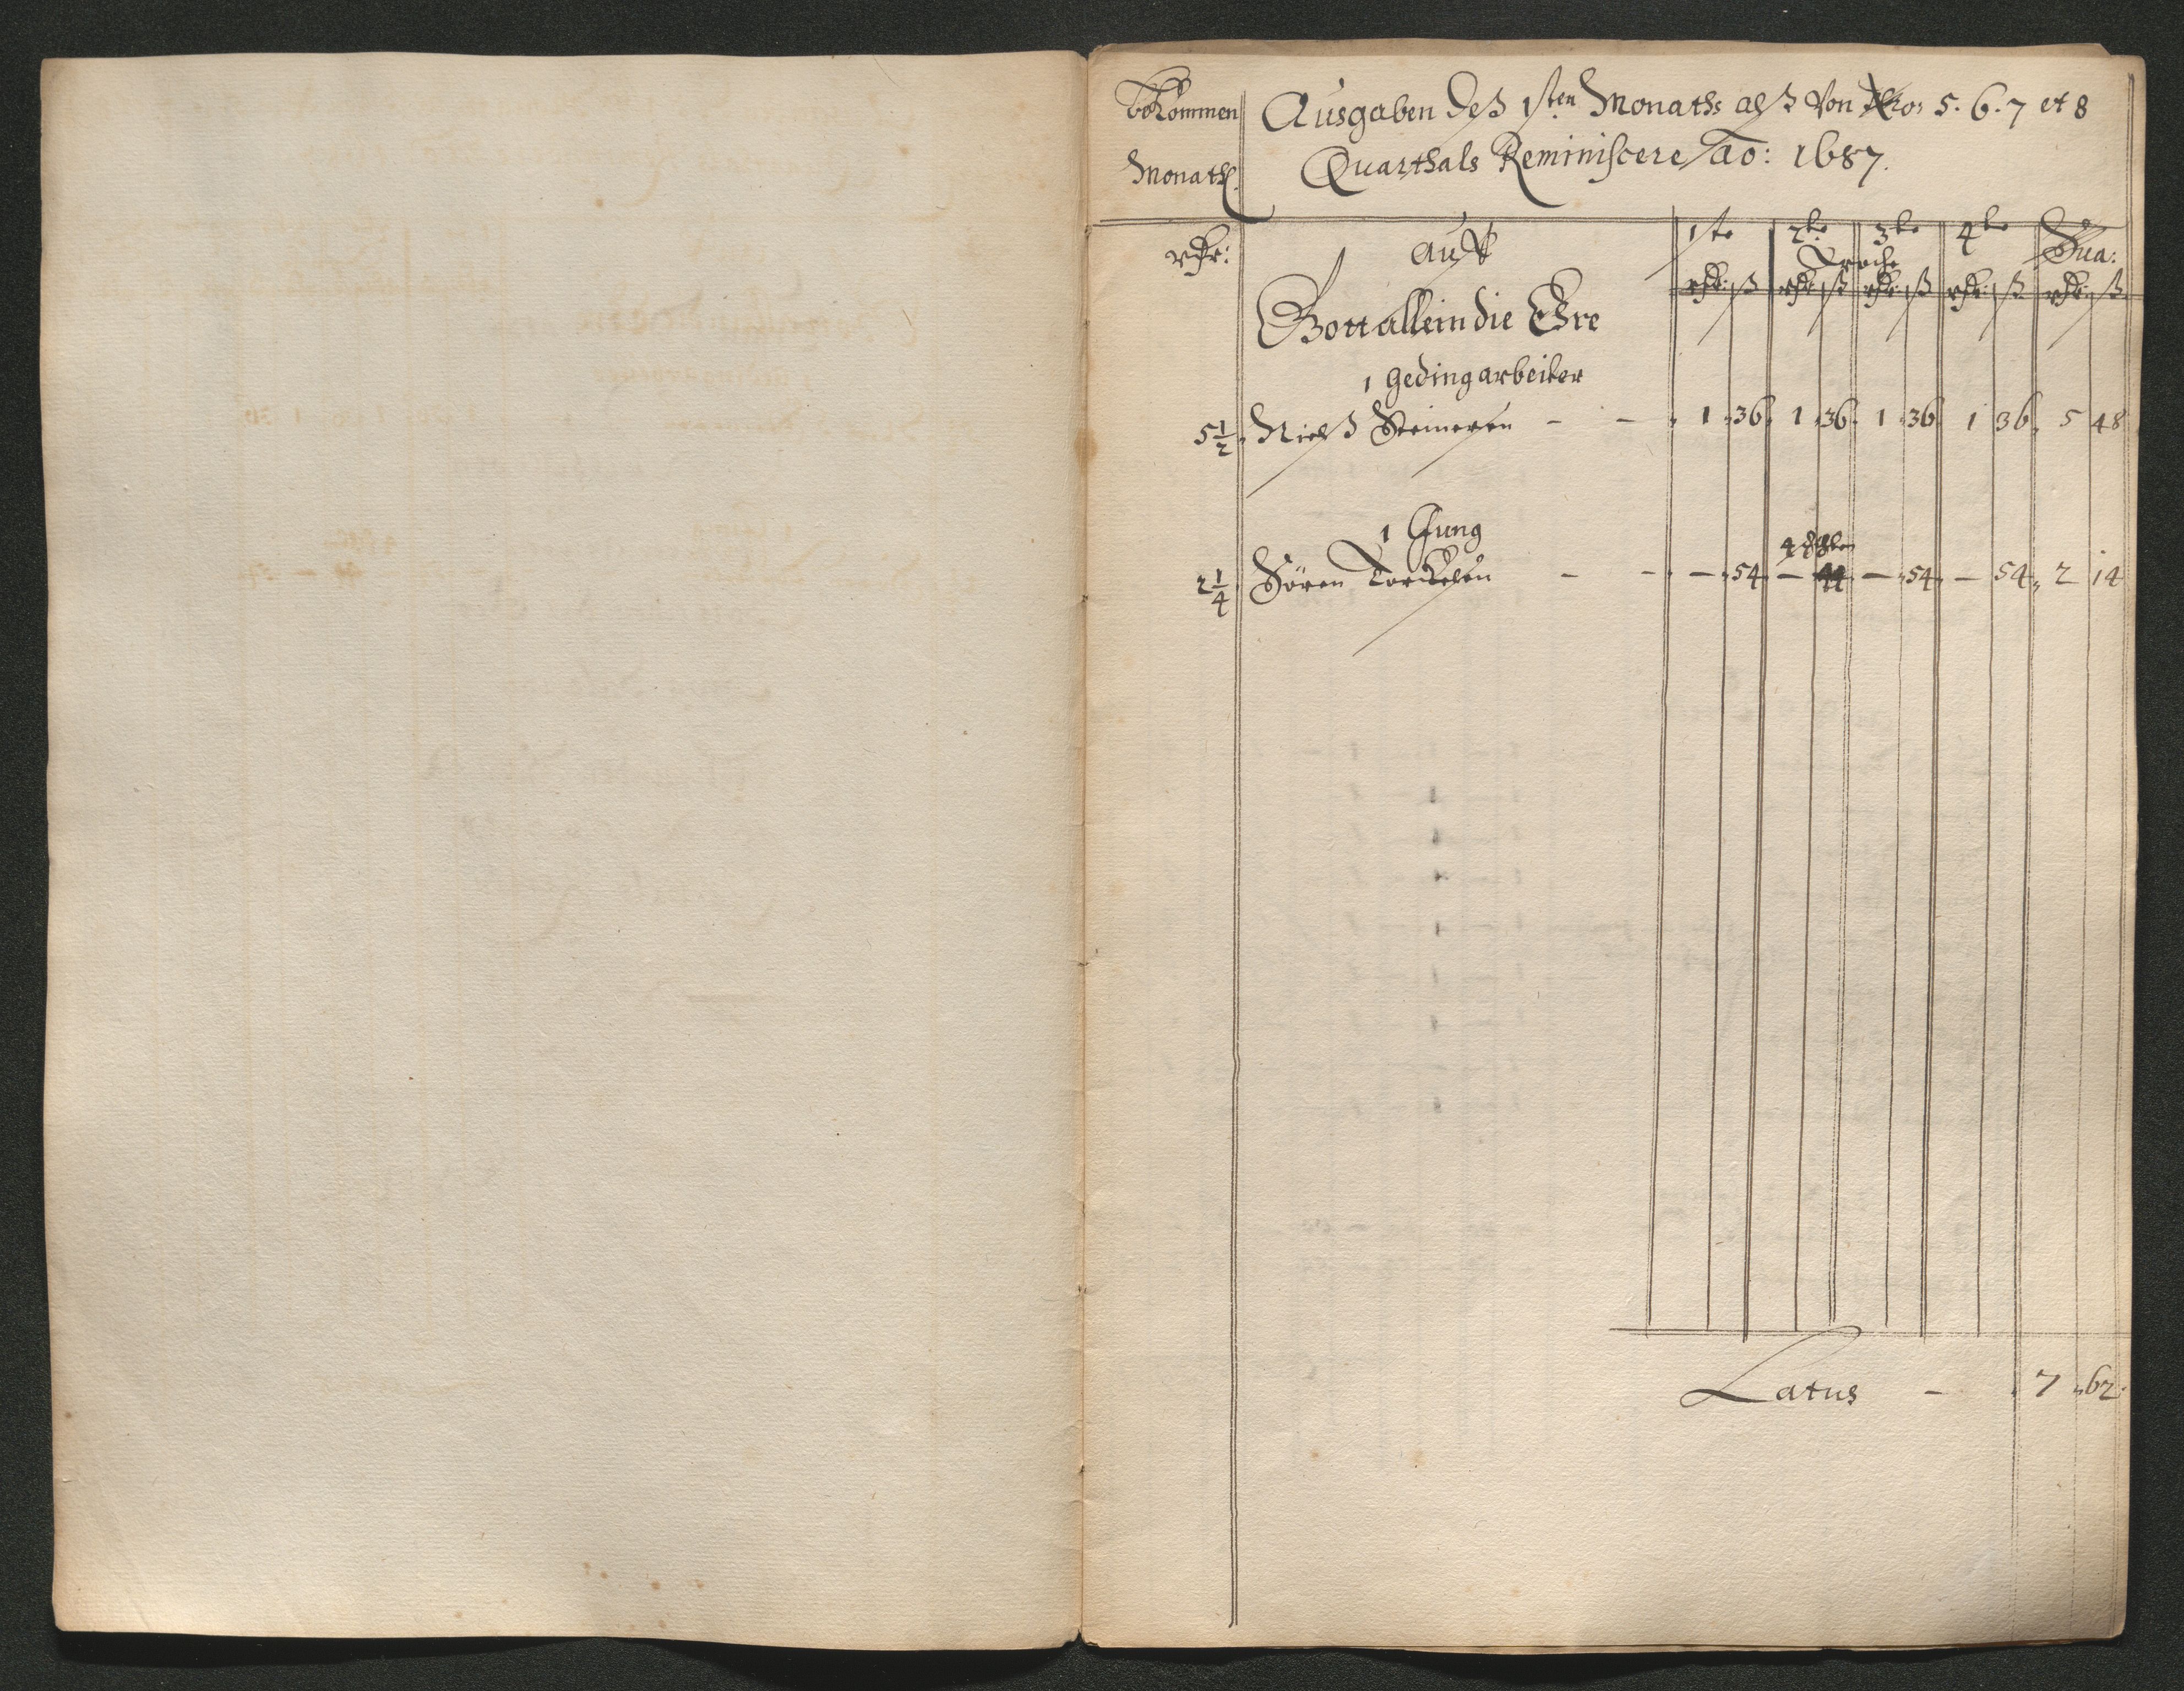 bekommen
Monathl.
Ausgaben deß 1sten Monaths alß von No: 5. 6. 7 et 8
Quarthals Reminiscere Ao: 1687.
rthr: auf 1ste 2te 3te 4te Sua:
Woche
rthr: ß rthr: ß rthr: ß rthr: ß rthr: ß
Gott allein die Ehre
1 Gedingarbeiter
5 1/2. Nielß Steinersen - - 1 36. 1 36. 1 36 1 36. 5 48
1 Jung
2 1/4. Sören Torckelsen - - — 54. — 44 — 54. — 54. 2 14
Latus - 7 62.